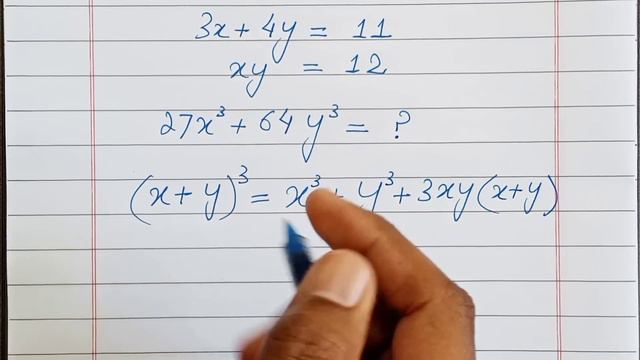 3x + 4y = 11
xy = 12
27x³ + 64y³ = ?
(x + y)³ = x³ + y³ + 3xy(x+y)